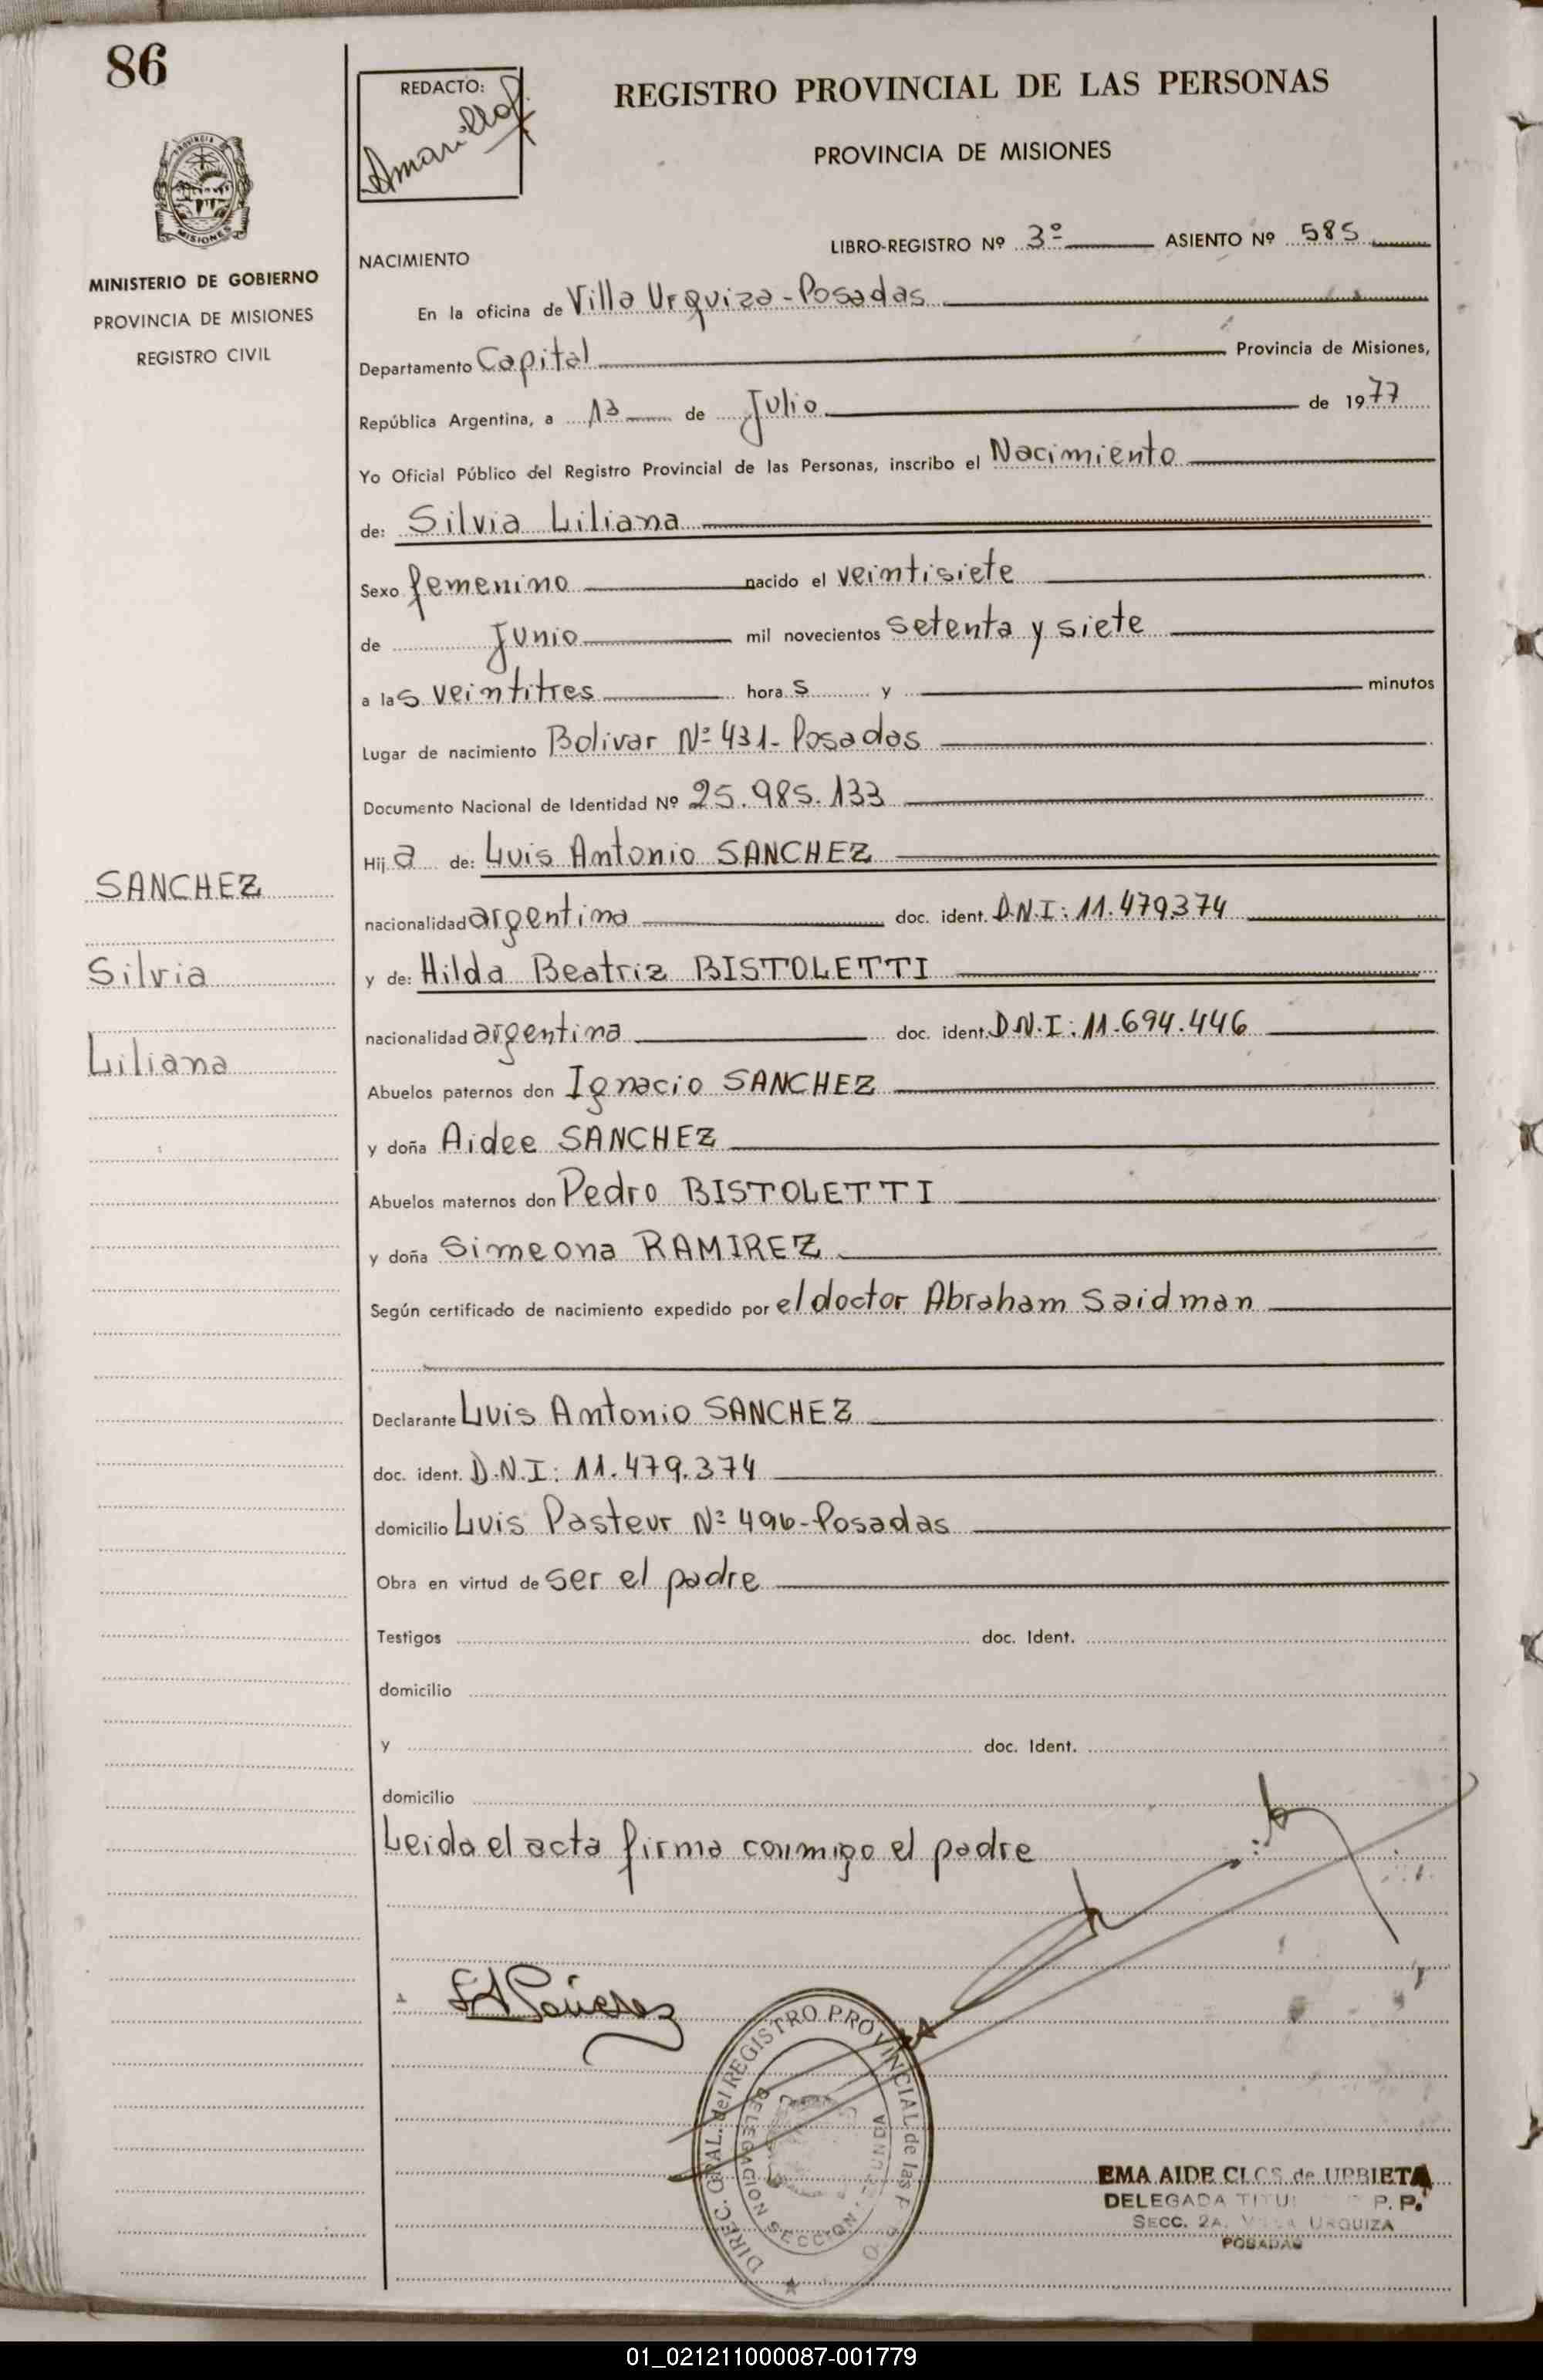 86
REDACTO:
Amarilla
REGISTRO PROVINCIAL DE LAS PERSONAS
PROVINCIA DE MISIONES
MISIONES
MINISTERIO DE GOBIERNO
PROVINCIA DE MISIONES
REGISTRO CIVIL
LIBRO-REGISTRO Nº 3º ASIENTO Nº 585
NACIMIENTO
En la oficina de Villa Urquiza - Posadas
Departamento Capital Provincia de Misiones,
República Argentina, a 13 de Julio de 1977
Yo Oficial Público del Registro Provincial de las Personas, inscribo el Nacimiento
de: Silvia Liliana
Sexo femenino nacido el veintisiete
de Junio mil novecientos setenta y siete
a las veintitres horas y minutos
Lugar de nacimiento Bolivar Nº 431- Posadas
Documento Nacional de Identidad Nº 25.985.133
Hija de: Luis Antonio SANCHEZ
SANCHEZ
nacionalidad argentina doc. ident. D.N.I: 11.479.374
Silvia
y de: Hilda Beatriz BISTOLETTI
nacionalidad argentina doc. ident. D.N.I: 11.694.446
Liliana
Abuelos paternos don Ignacio SANCHEZ
y doña Aidee SANCHEZ
Abuelos maternos don Pedro BISTOLETTI
y doña Simeona RAMIREZ
Según certificado de nacimiento expedido por el doctor Abraham Saidman
Declarante Luis Antonio SANCHEZ
doc. ident. D.N.I: 11.479.374
domicilio Luis Pasteur Nº 496-Posadas
Obra en virtud de ser el padre
Testigos doc. Ident.
domicilio
y doc. Ident.
domicilio
Leida el acta firma conmigo el padre
LA Sánchez
DIREC. GRAL. del REGISTRO PROVINCIAL de las
DELEGACION SECCION SEGUNDA
EMA AIDE de URBIETA
DELEGADA P. P.
SECC. 2A. VILLA URQUIZA
POSADAS
01_021211000087-001779